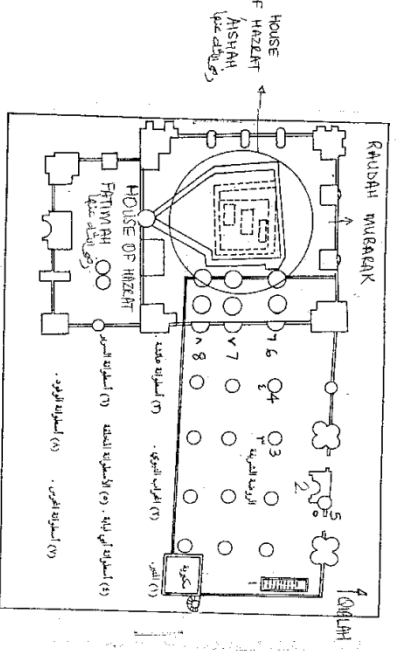 HOUSE
OF HAZRAT
AISHAH
رضي الله عنها
RAUDAH MUBARAK
HOUSE OF HAZRAT
FATIMAH
رضي الله عنها
QIBLAH
٦ 6
٧ 7
٨ 8
4
٤
3
٣
2
5
٥
١
الروضة الشريفة
مكبرية
(١) المنبر
(٢) المحراب النبوي .
(٣) أسطوانة عائشة
(٤) أسطوانة أبي لبابة .
(٥) الأسطوانة المخلقة
(٦) أسطوانة السرير
(٧) أسطوانة الحرس .
(٨) أسطوانة الوفود .